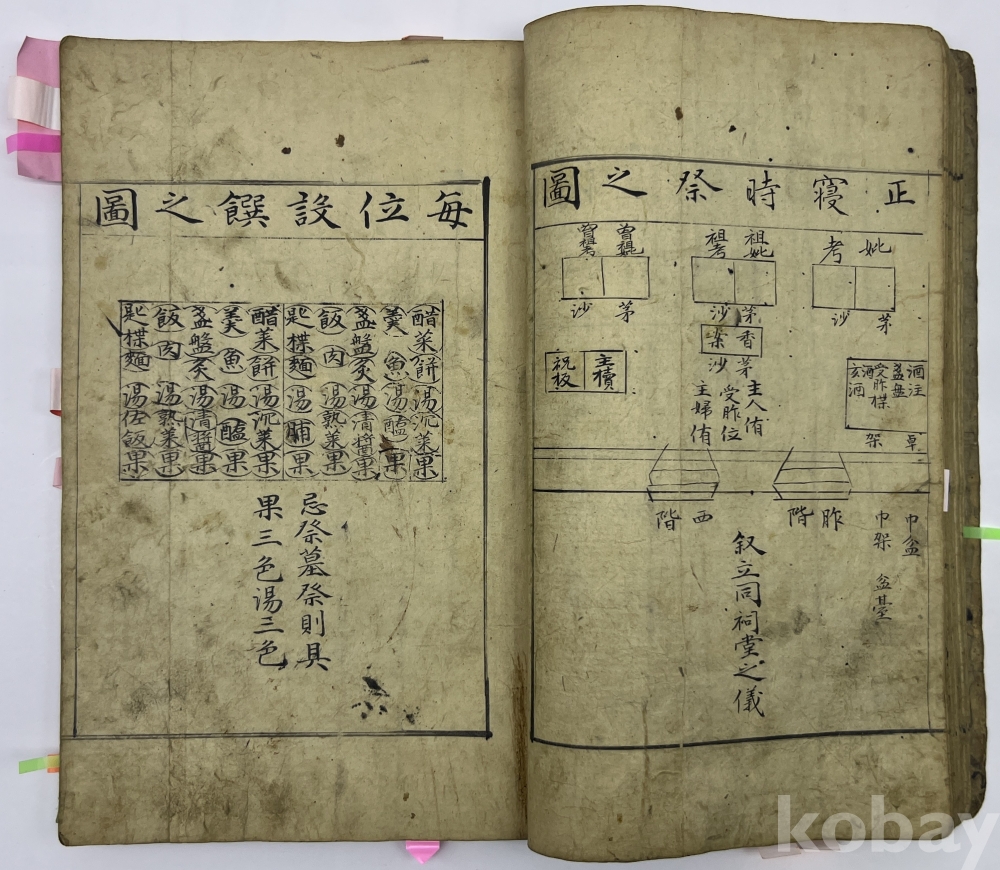 正寢時祭之圖
妣
考
祖妣
祖考
曾祖妣
曾祖考
茅沙
茅沙
茅沙
香案
茅沙
主櫝
祝板
酒注
盞盘
受胙楪
酒
玄酒
卓架
主人侑
受胙位
主婦侑
胙階
西階
巾盆
巾架
盆臺
叙立同祠堂之儀
每位設饌之圖
醋菜 餠 湯 沉菜 果
羹 魚 湯 醢 果
盞盤 炙 湯 清醬 果
飯 肉 湯 熟菜 果
匙楪 麵 湯 脯 果
醋菜 餠 湯 沉菜 果
羹 魚 湯 醢 果
盞盤 炙 湯 清醬 果
飯 肉 湯 熟菜 果
匙楪 麵 湯 佐飯 果
忌祭墓祭則具
果三色湯三色
kobay